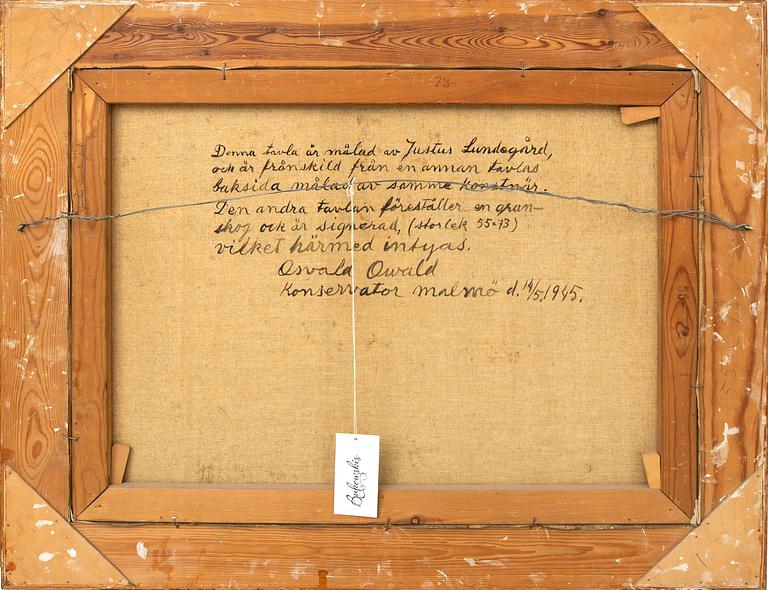 78-
Denna tavla är målad av Justus Lundegård,
och är frånskild från en annan tavlas
baksida målad av samme konstnär.
Den andra tavlan föreställer en gran-
skog och är signerad, (storlek 55×73)
vilket härmed intygas.
Osvald Owald
Konservator Malmö d. 14/5.1945.
Bukowskis